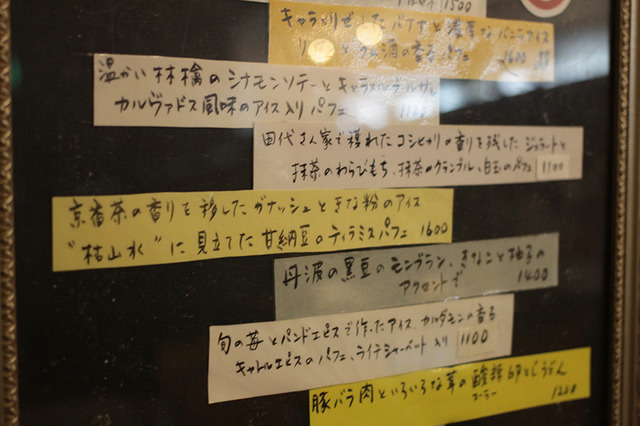 1500
キャラメリゼしたバナナと濃厚なバニラアイス
ラム酒の香るパフェ 1600
温かい林檎のシナモンソテーとキャラメル
カルヴァドス風味のアイス入りパフェ
田代さん家で穫れたコシヒカリの香りを残したジェラートと
抹茶のわらびもち、抹茶のクランブル、白玉のパフェ 1100
京番茶の香りを移したガナッシュときな粉のアイス
"枯山水"に見立てた甘納豆のティラミスパフェ 1600
丹波の黒豆のモンブラン、きなこと柚子の
アクセントで 1400
旬の苺とパンドエピスで作ったアイス、カルダモンの香る
キャトルエピスのパフェ、ライチシャーベット入り 1100
豚バラ肉といろいろな茸の酸辣
スーラー
1200